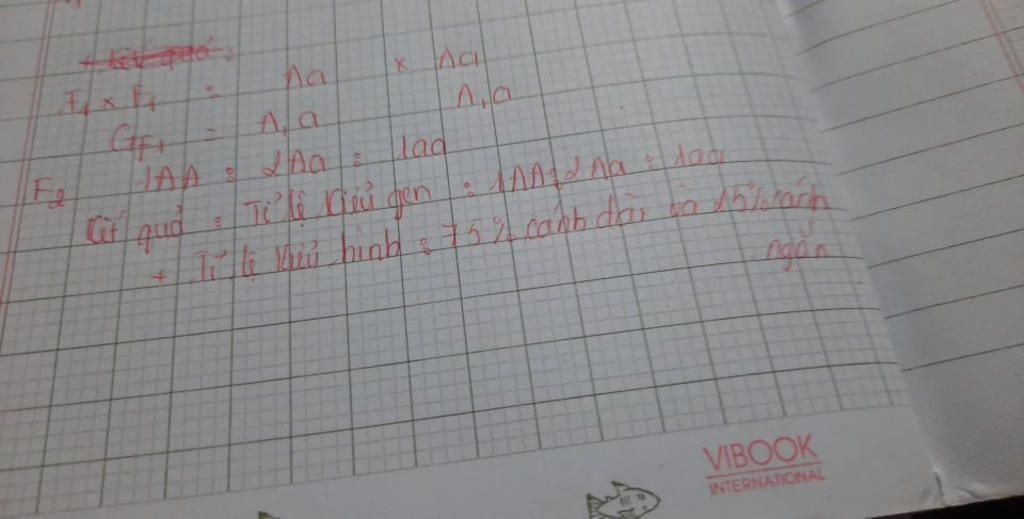 F₁ x F₁ : Aa x Aa
GF₁ = A, a A, a
F₂ 1AA : 2Aa : 1aa
Kết quả : Tỉ lệ kiểu gen : 1AA : 2Aa : 1aa
+ Tỉ lệ kiểu hình : 75% cánh dài và 25% cánh
ngắn
VIBOOK
INTERNATIONAL